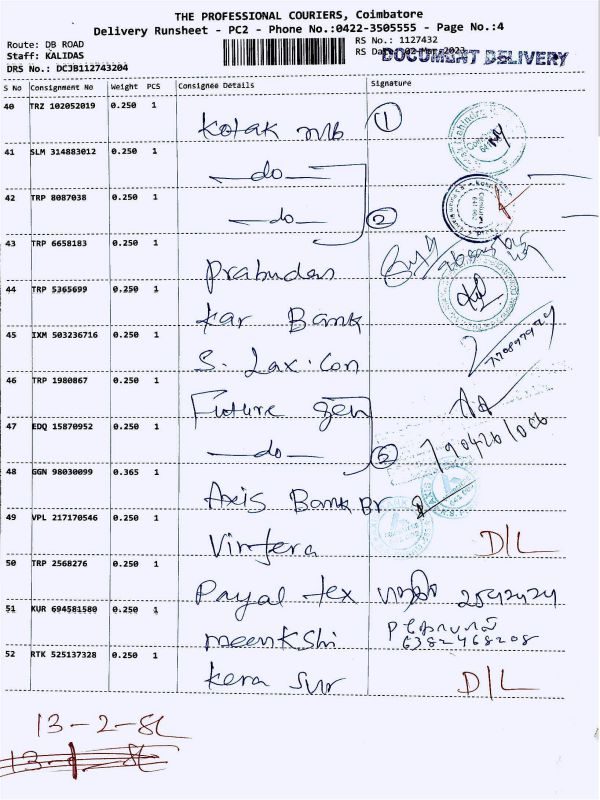 THE PROFESSIONAL COURIERS, Coimbatore
Delivery Runsheet - PC2 - Phone No.:0422-3505555 - Page No.:4
Route: DB ROAD
RS No.: 1127432
Staff: KALIDAS
RS Date: 02-Mar-2023
DOCUMENT DELIVERY
DRS No.: DCJB112743204
S No Consignment No Weight PCS Consignee Details Signature
40 TRZ 102052019 0.250 1
Kotak MB 1
41 SLM 314883012 0.250 1
do
42 TRP 8087038 0.250 1
do 2
43 TRP 6658183 0.250 1
44 TRP 5365699 0.250 1
Kar Bank
45 IXM 503236716 0.250 1
S. Lax. Con
46 TRP 1980867 0.250 1
Future gen
47 EDQ 15870952 0.250 1
do
48 GGN 98030099 0.365 1
Axis Bank Br
49 VPL 217170546 0.250 1
D/L
50 TRP 2568276 0.250 1
Payal tex
51 KUR 694581580 0.250 1
meenkshi 6382468208
52 RTK 525137328 0.250 1
Kera Sur D/L
13-2-